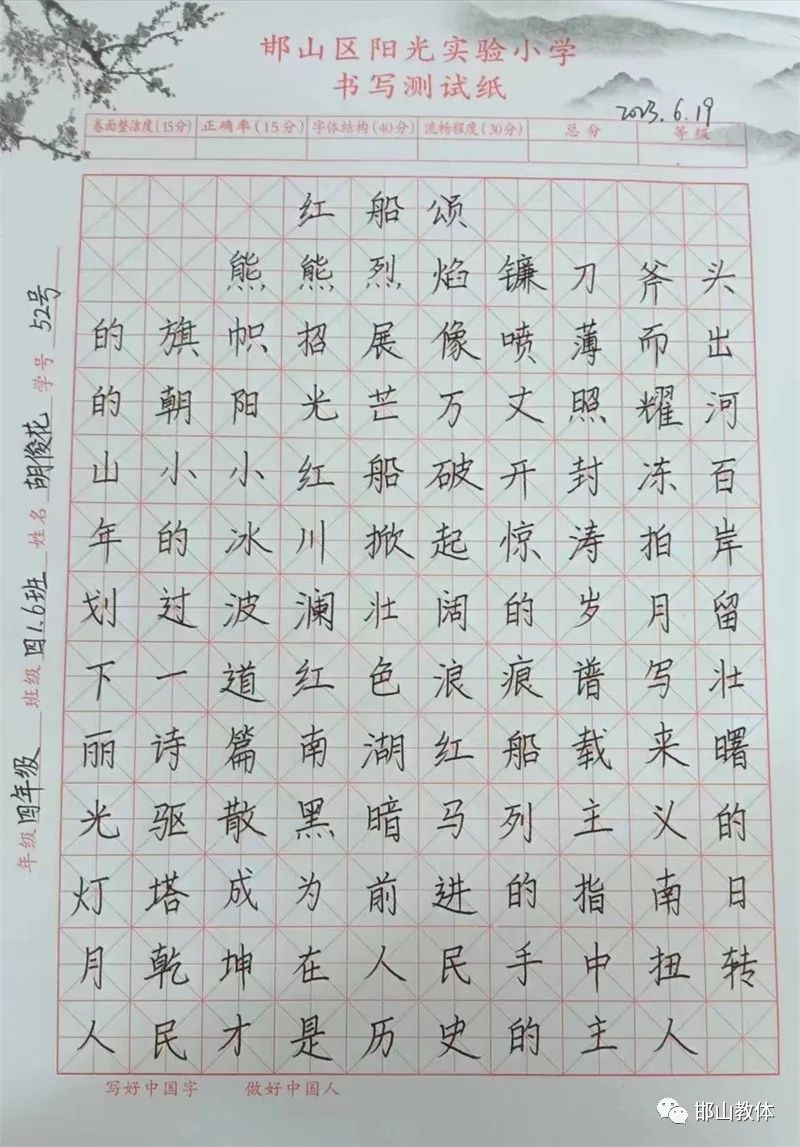 邯山区阳光实验小学
书写测试纸
2023.6.19
卷面整洁度(15分) 正确率(15分) 字体结构(40分) 流畅程度(30分) 总分 等级
红船颂
熊熊烈焰镰刀斧头
的旗帜招展像喷薄而出
的朝阳光芒万丈照耀河
山小小红船破开封冻百
年的冰川掀起惊涛拍岸
划过波澜壮阔的岁月留
下一道红色浪痕谱写壮
丽诗篇南湖红船载来曙
光驱散黑暗马列主义的
灯塔成为前进的指南日
月乾坤在人民手中扭转
人民才是历史的主人
年级 四年级 班级 四1.6班 姓名 胡俊花 学号 52号
写好中国字 做好中国人
邯山教体